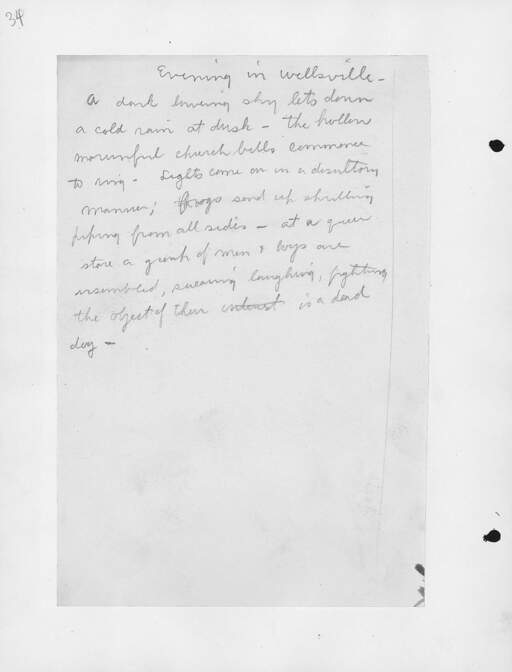 34
Evening in Wellsville -
A dark lowering sky lets down
a cold rain at dusk - the hollow
mournful church bells commence
to ring - Lights come on in a desultory
manner; frogs send up shrilling
piping from all sides - at a queer
store a group of men & boys are
assembled, swearing laughing, fighting
the object of their interest is a dead
dog -